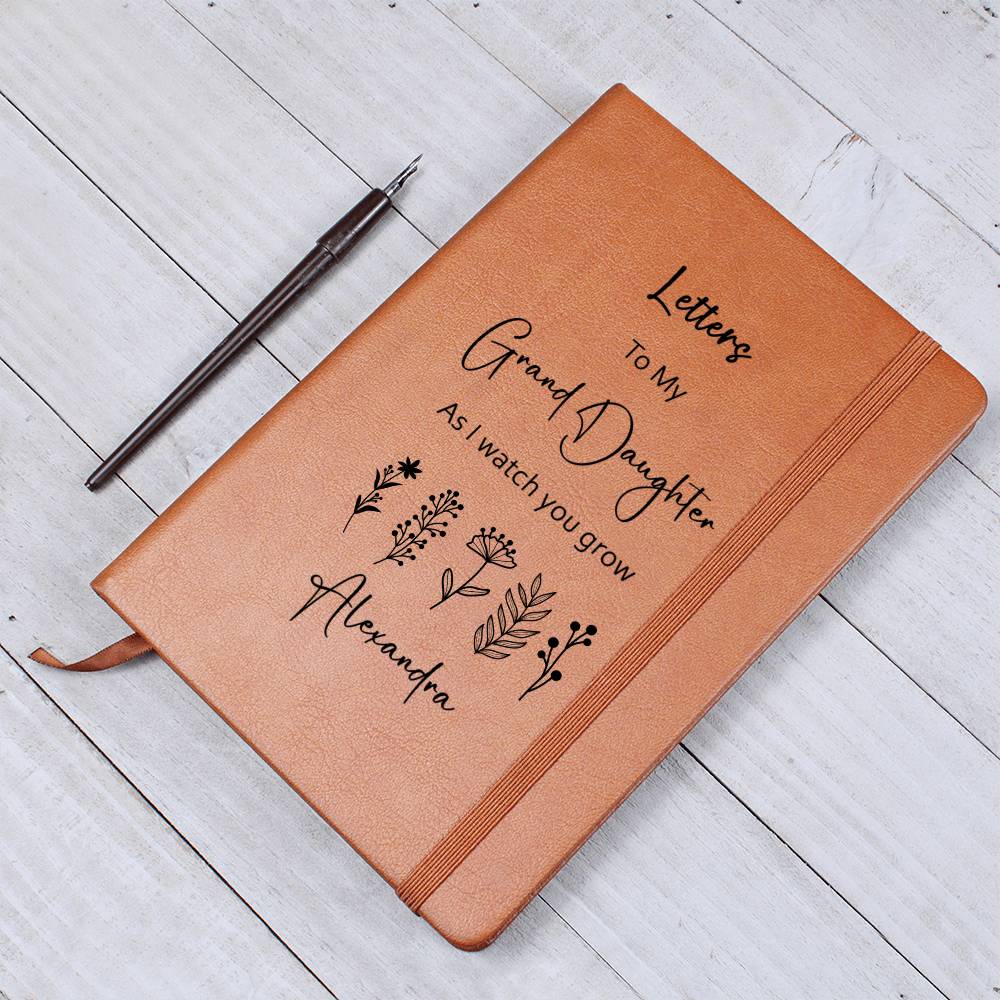 Letters
To My
Grand Daughter
As I watch you grow
Alexandra